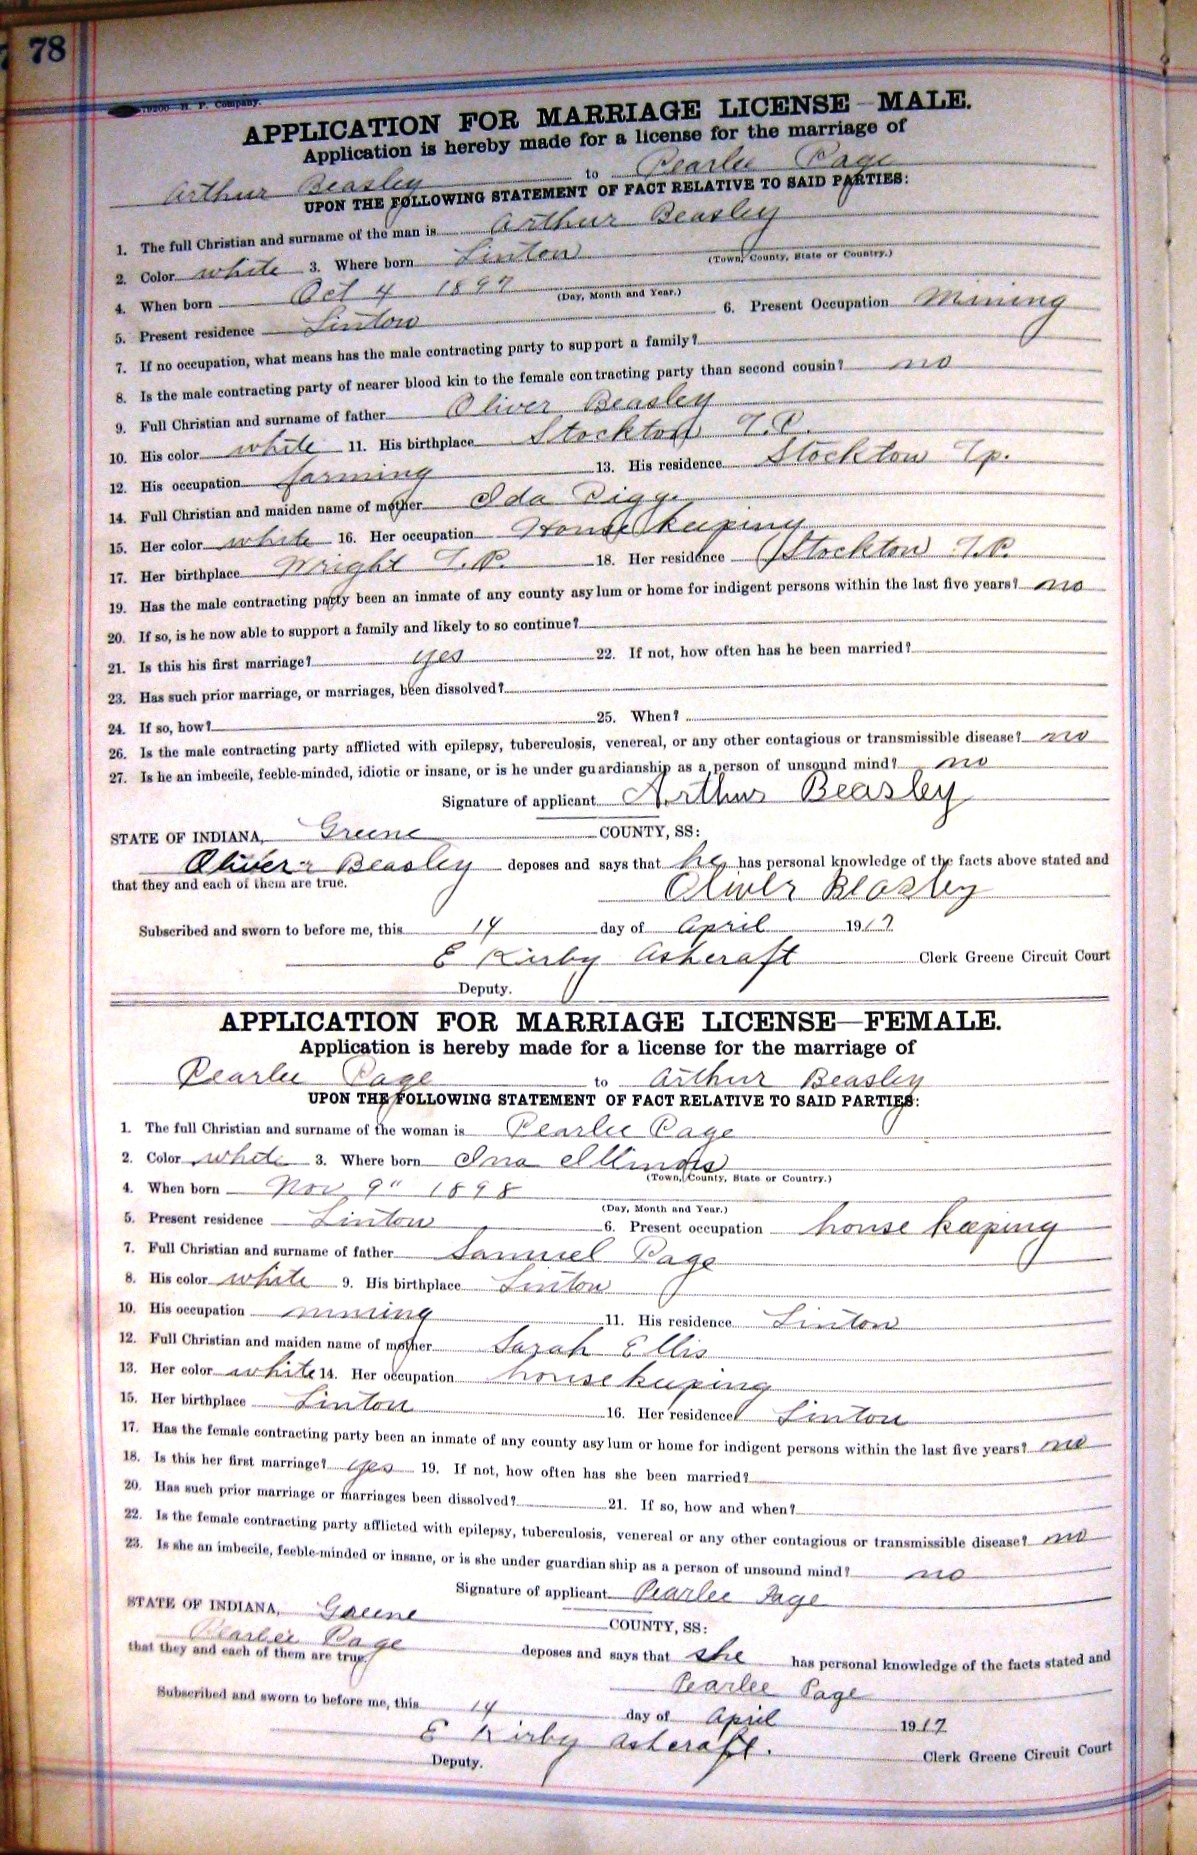 78
H. P. Company.
APPLICATION FOR MARRIAGE LICENSE—MALE.
Application is hereby made for a license for the marriage of
Arthur Beasley to Pearlee Page
UPON THE FOLLOWING STATEMENT OF FACT RELATIVE TO SAID PARTIES:
1. The full Christian and surname of the man is Arthur Beasley
2. Color white 3. Where born Linton
(Town, County, State or Country.)
4. When born Oct 4 1897
(Day, Month and Year.)
5. Present residence Linton 6. Present Occupation Mining
7. If no occupation, what means has the male contracting party to support a family?
8. Is the male contracting party of nearer blood kin to the female contracting party than second cousin? no
9. Full Christian and surname of father Oliver Beasley
10. His color white 11. His birthplace Stockton T.P.
12. His occupation farming 13. His residence Stockton Tp.
14. Full Christian and maiden name of mother Ida
15. Her color white 16. Her occupation House keeping
17. Her birthplace Wright T.P. 18. Her residence Stockton T.P.
19. Has the male contracting party been an inmate of any county asylum or home for indigent persons within the last five years? no
20. If so, is he now able to support a family and likely to so continue?
21. Is this his first marriage? yes 22. If not, how often has he been married?
23. Has such prior marriage, or marriages, been dissolved?
24. If so, how? 25. When?
26. Is the male contracting party afflicted with epilepsy, tuberculosis, venereal, or any other contagious or transmissible disease? no
27. Is he an imbecile, feeble-minded, idiotic or insane, or is he under guardianship as a person of unsound mind? no
Signature of applicant Arthur Beasley
STATE OF INDIANA, Greene COUNTY, SS:
Oliver Beasley deposes and says that he has personal knowledge of the facts above stated and
that they and each of them are true.
Oliver Beasley
Subscribed and sworn to before me, this 14 day of April 1917
E Kirby Ashcraft Clerk Greene Circuit Court
Deputy.
APPLICATION FOR MARRIAGE LICENSE—FEMALE.
Application is hereby made for a license for the marriage of
Pearlee Page to Arthur Beasley
UPON THE FOLLOWING STATEMENT OF FACT RELATIVE TO SAID PARTIES:
1. The full Christian and surname of the woman is Pearlee Page
2. Color white 3. Where born Ina Illinois
(Town, County, State or Country.)
4. When born Nov 9" 1898
(Day, Month and Year.)
5. Present residence Linton 6. Present occupation house keeping
7. Full Christian and surname of father Samuel Page
8. His color white 9. His birthplace Linton
10. His occupation mining 11. His residence Linton
12. Full Christian and maiden name of mother Sarah Ellis
13. Her color white 14. Her occupation housekeeping
15. Her birthplace Linton 16. Her residence Linton
17. Has the female contracting party been an inmate of any county asylum or home for indigent persons within the last five years? no
18. Is this her first marriage? yes 19. If not, how often has she been married?
20. Has such prior marriage or marriages been dissolved? 21. If so, how and when?
22. Is the female contracting party afflicted with epilepsy, tuberculosis, venereal or any other contagious or transmissible disease? no
23. Is she an imbecile, feeble-minded or insane, or is she under guardianship as a person of unsound mind? no
Signature of applicant Pearlee Page
STATE OF INDIANA, Greene COUNTY, SS:
Pearlee Page deposes and says that she has personal knowledge of the facts stated and
that they and each of them are true.
Pearlee Page
Subscribed and sworn to before me, this 14 day of April 1917
E Kirby Ashcraft. Clerk Greene Circuit Court
Deputy.